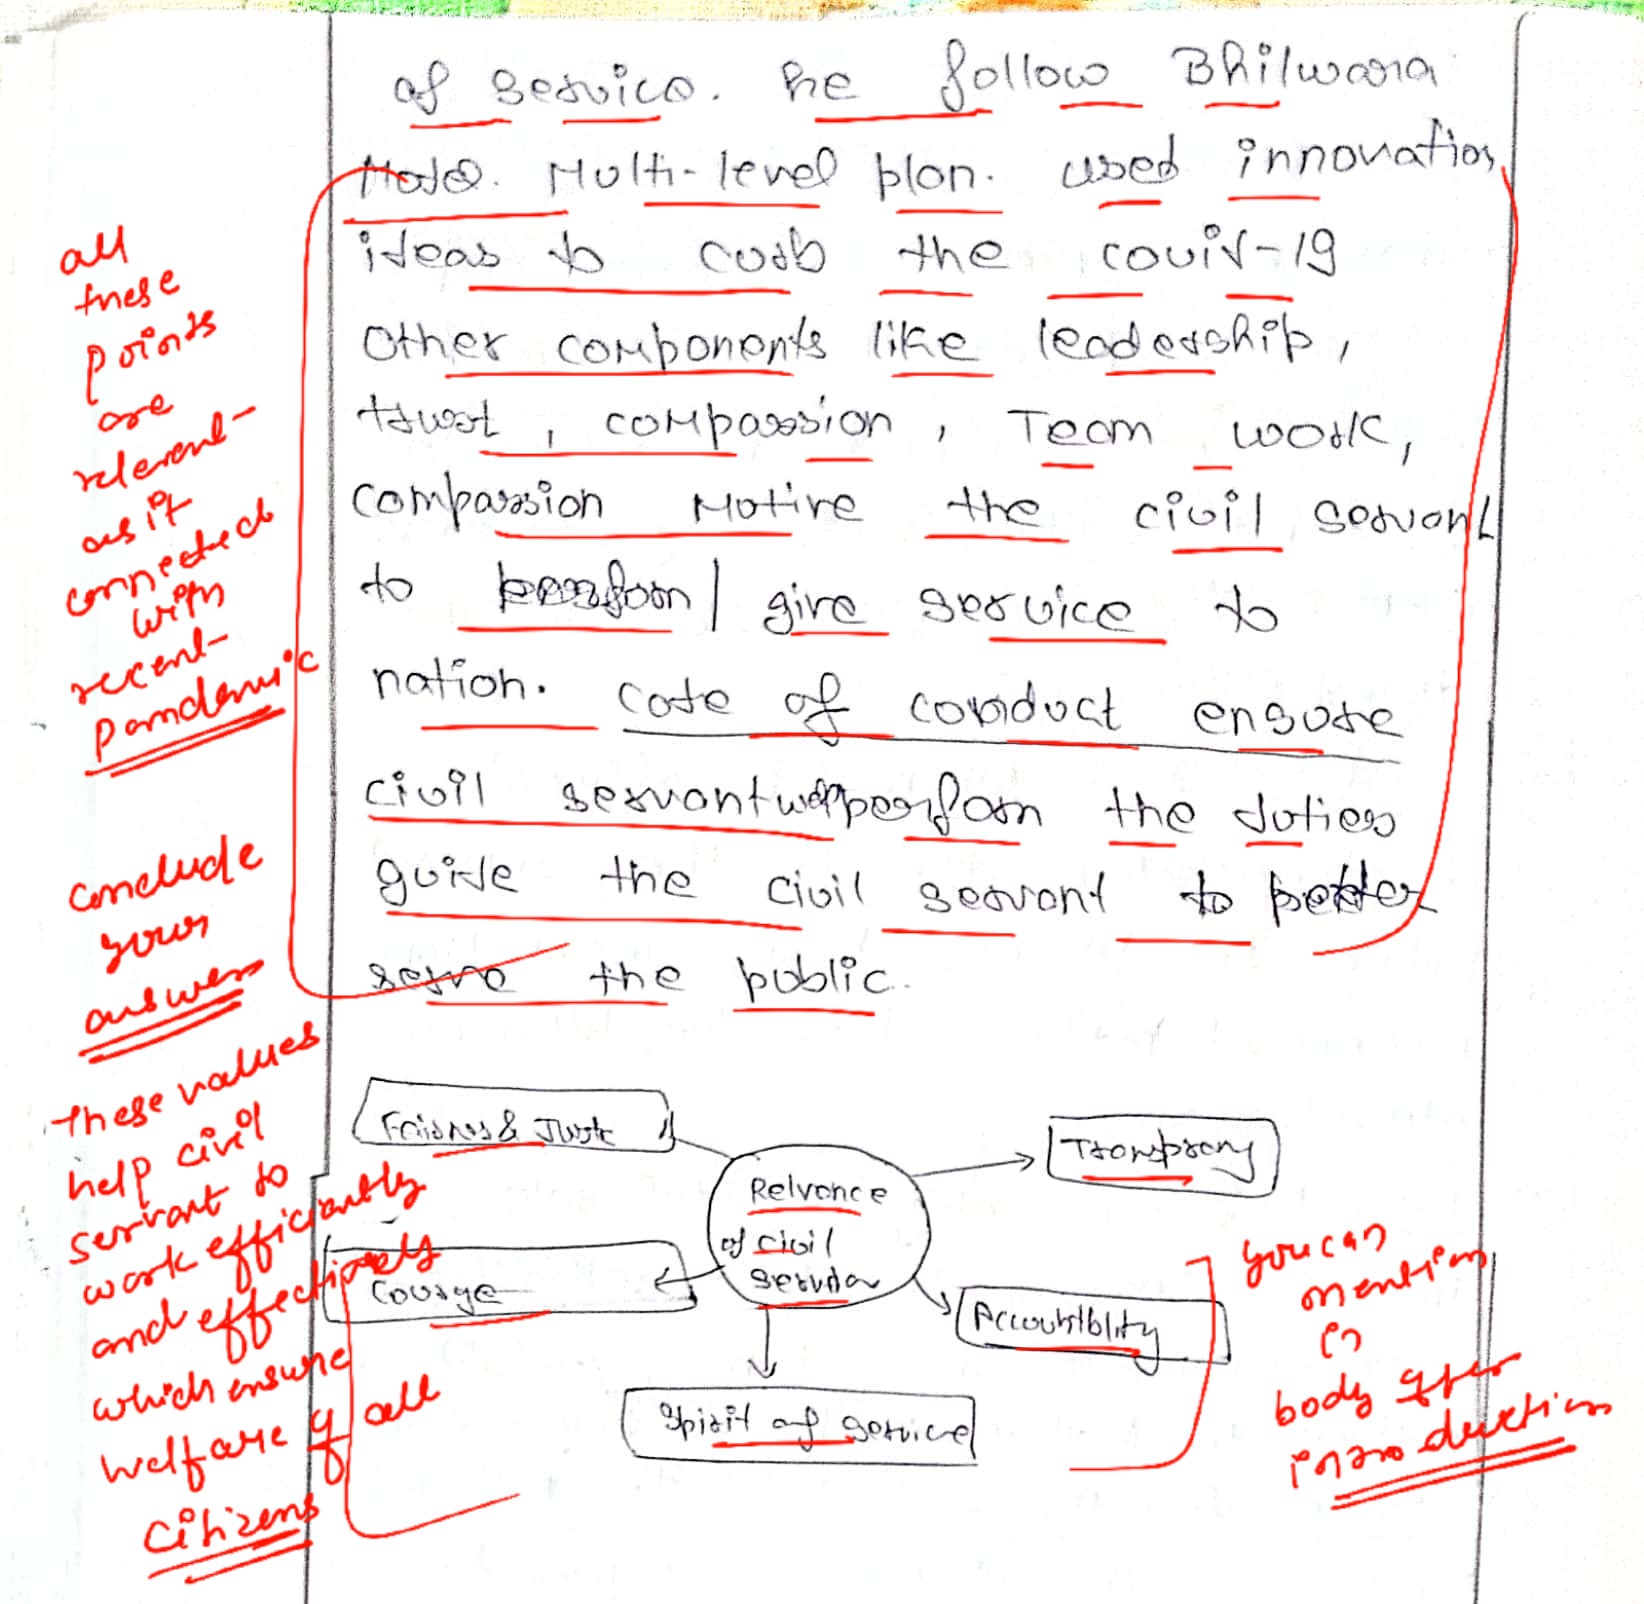 of service. he follow Bhilwara
Model. Multi-level plan. used innovation
ideas to curb the covid-19
Other components like leadership,
trust, compassion, Team work,
compassion motive the civil servant
to perform / give service to
nation. code of conduct ensure
civil servant perform the duties
guide the civil servant to better
serve the public.
all
these
points
are
relevant
as it
connected
with
recent
pandemic
conclude
your
answer
These values
help civil
servant to
work efficiantly
and effectively
which ensure
welfare of all
citizens
Fairness & Just
Transprany
Relvance
of civil
servar
Courge
Accountiblity
Spirit of service
you can
mention
in
body after
introduction